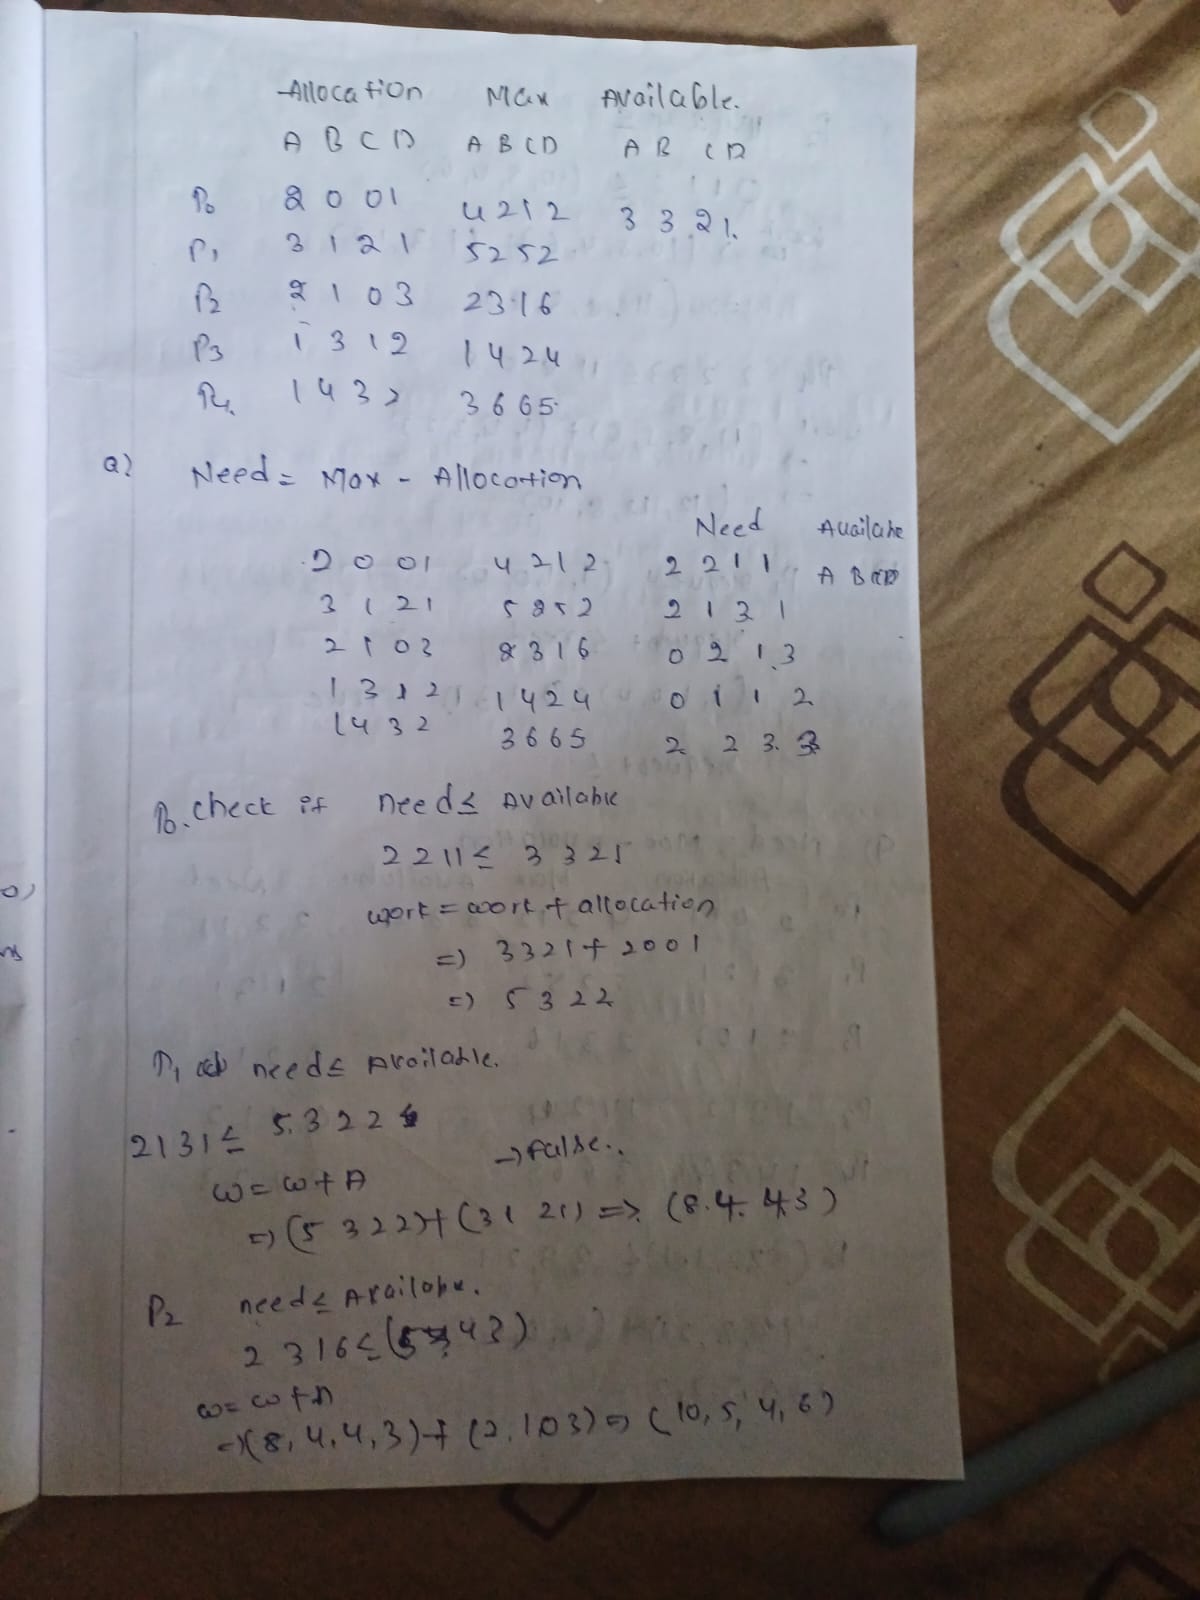 Allocation Max Available.
A B C D A B C D A B C D
P0 2 0 0 1 4 2 1 2 3 3 2 1.
P1 3 1 2 1 5 2 5 2
P2 2 1 0 3 2 3 1 6
P3 1 3 1 2 1 4 2 4
P4 1 4 3 2 3 6 6 5
a) Need = Max - Allocation
Need Availabe
2 0 0 1 4 2 1 2 2 2 1 1 A B C D
3 1 2 1 5 2 5 2 2 1 3 1
2 1 0 3 2 3 1 6 0 2 1 3
1 3 1 2 1 4 2 4 0 1 1 2
1 4 3 2 3 6 6 5 2 2 3. 3
P0. check if need ≤ Available
2 2 1 1 ≤ 3 3 2 1
work = work + allocation
=) 3 3 2 1 + 2 0 0 1
=) 5 3 2 2
P1 need ≤ Available.
2 1 3 1 ≤ 5. 3 2 2
→ false..
w = w + A
=) (5 3 2 2) + (3 1 2 1) => (8. 4. 4 3)
P2 need ≤ Availabe.
2 3 1 6 ≤ ( 4 3)
w = w + A
=) (8, 4, 4, 3) + (2, 1, 0 3) => (10, 5, 4, 6)